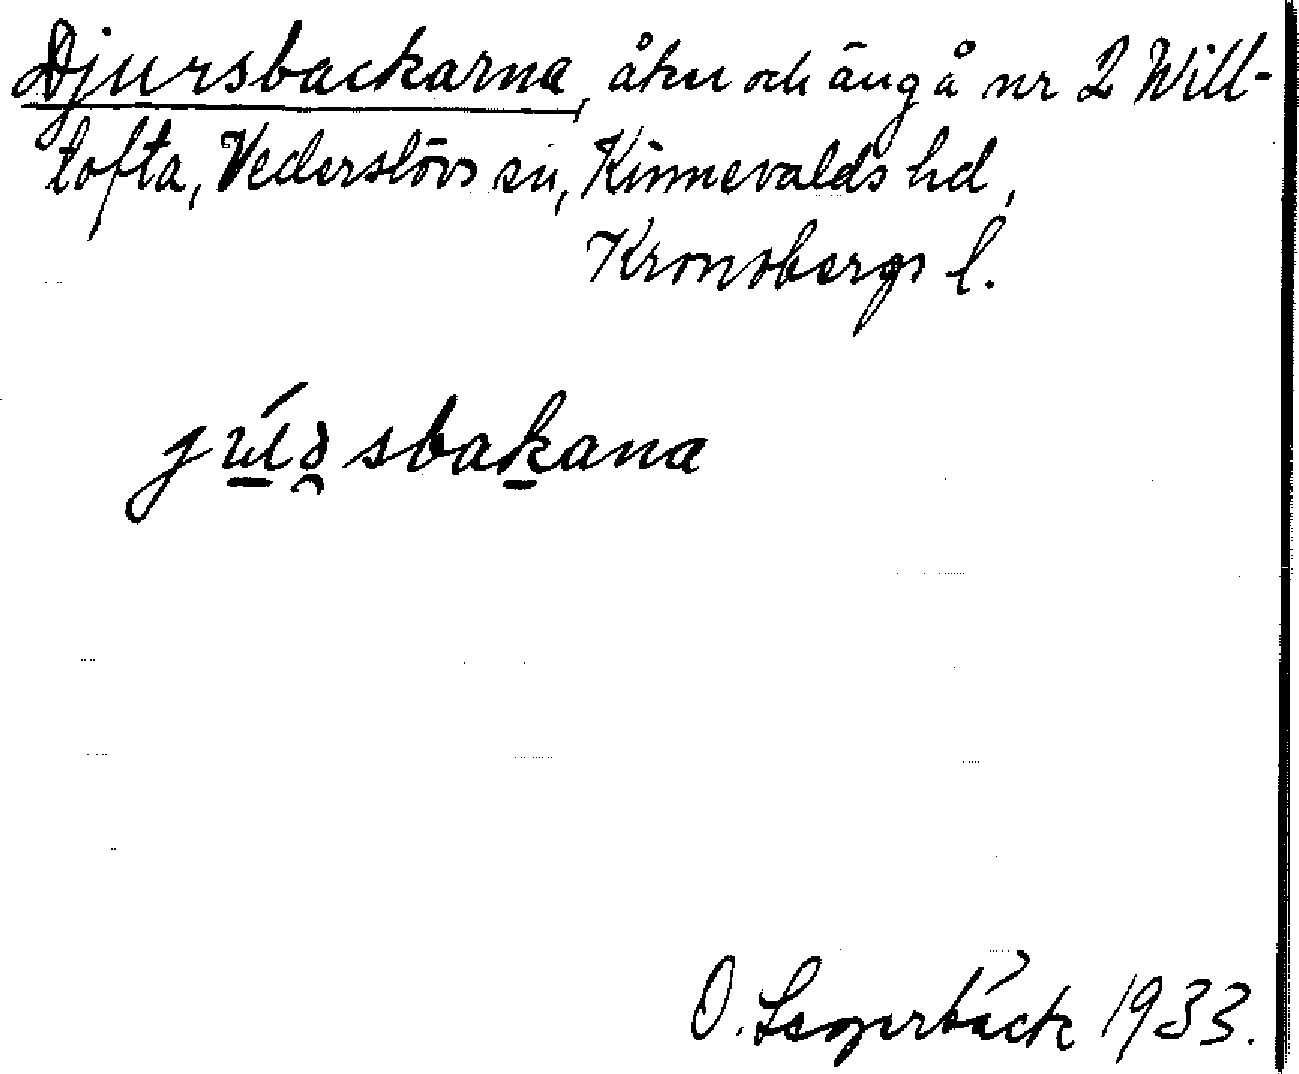 Djursbackarna, åker och äng å nr 2 Will-
tofta, Vederslövs sn, Kinnevalds hd,
Kronobergs l.
júəsbakana
O. Lagerbäck 1933.